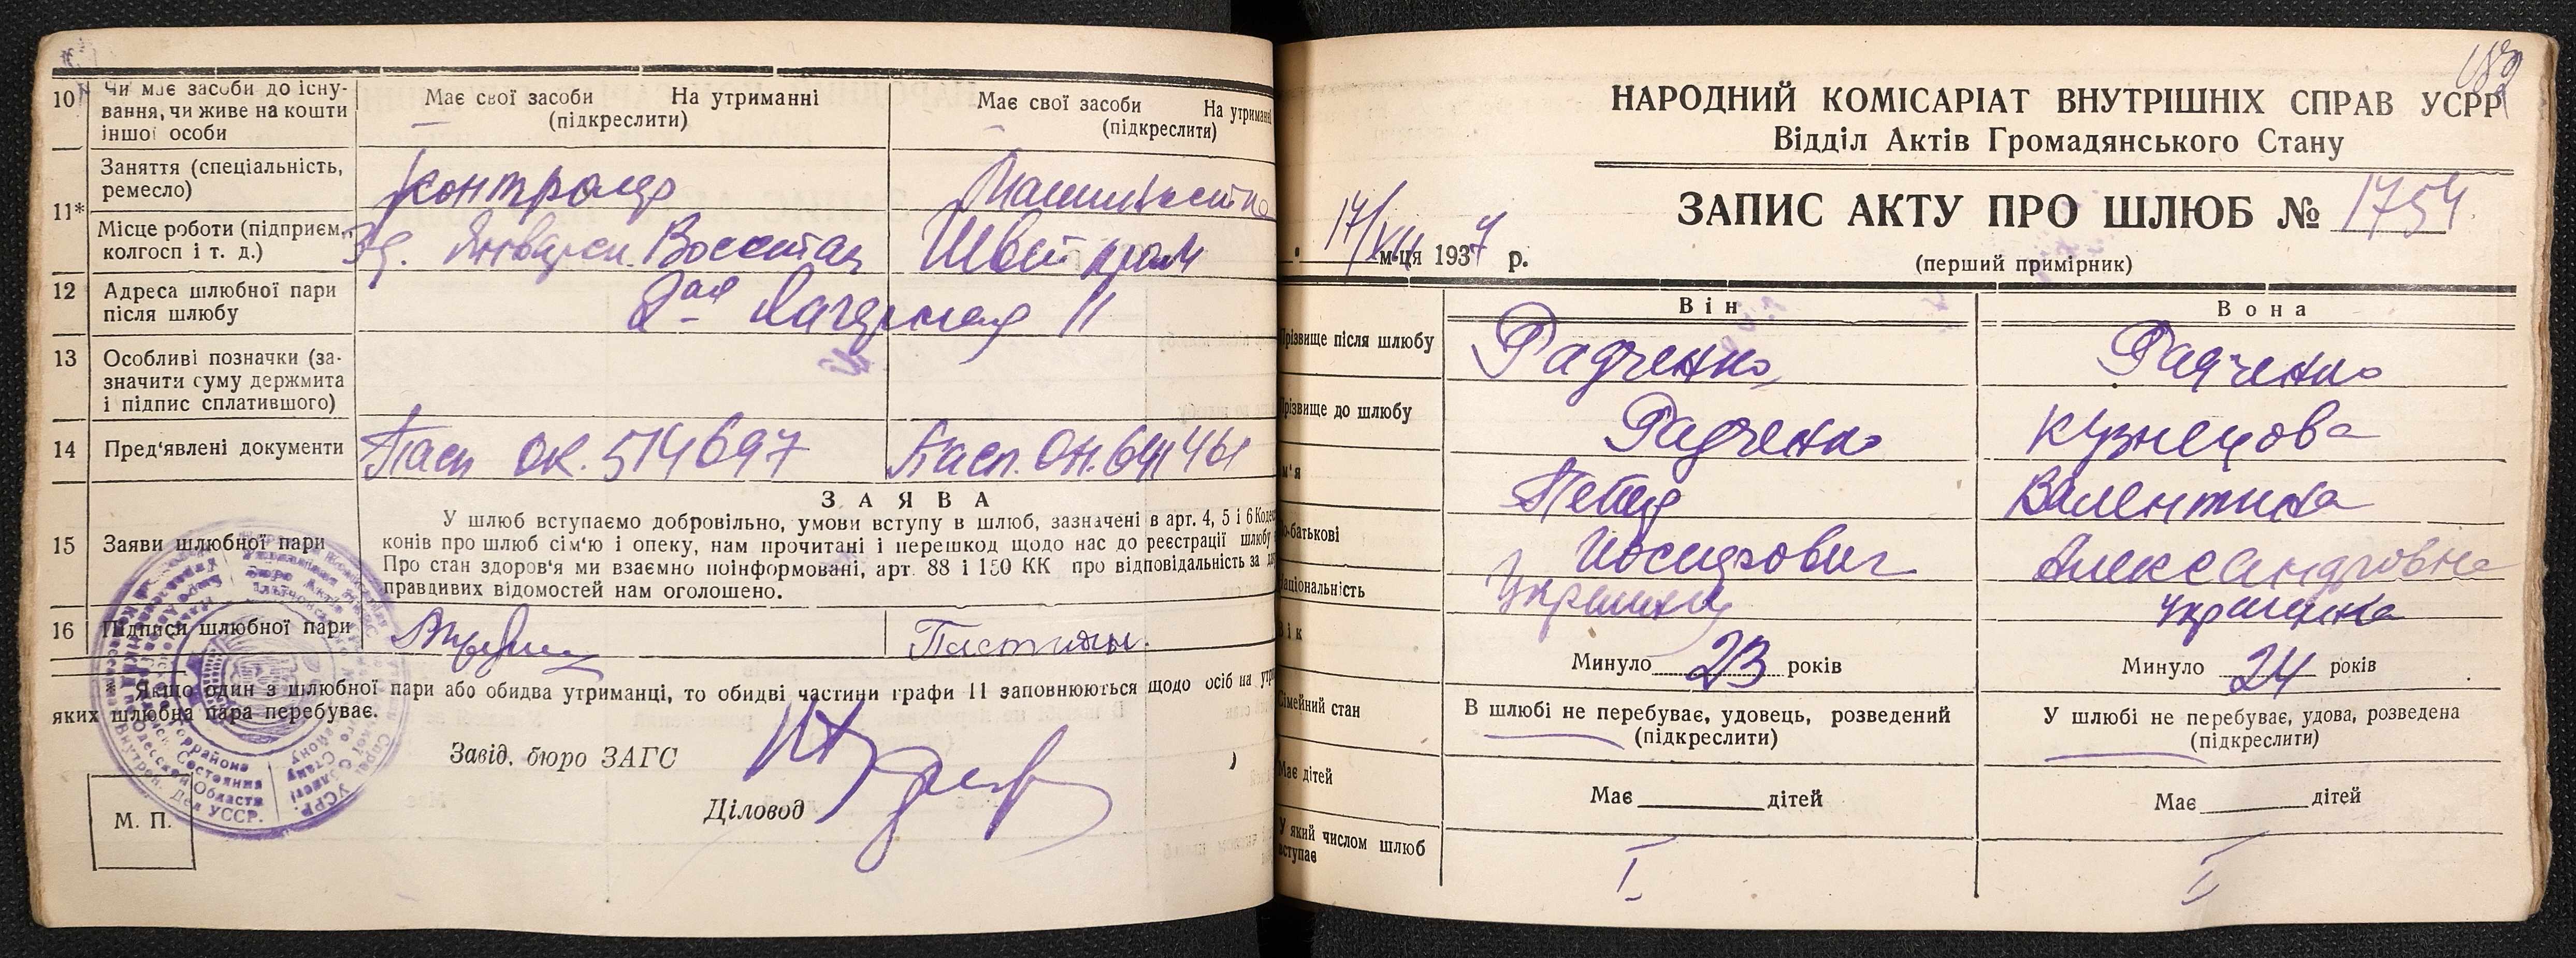 10 Чи має засоби до існу-
вання, чи живе на кошти
іншої особи
Має свої засоби На утриманні
(підкреслити)
Має свої засоби На утриманні
(підкреслити)
11* Заняття (спеціальність,
ремесло)
контролер
Місце роботи (підприєм.,
колгосп і т. д.)
Зд. Январск. Восстан
Швейпром
12 Адреса шлюбної пари
після шлюбу
2ая Лагерная 11
13 Особливі позначки (за-
значити суму держмита
і підпис сплатившого)
14 Пред'явлені документи
Пасп ОК. 514697
Пасп. ОН. 641461
ЗАЯВА
15 Заяви шлюбної пари
У шлюб вступаємо добровільно, умови вступу в шлюб, зазначені в арт. 4, 5 і 6 Кодек
конів про шлюб сім'ю і опеку, нам прочитані і перешкод щодо нас до реєстрації шлюбу
Про стан здоров'я ми взаємно поінформовані, арт. 88 і 150 КК про відповідальність за
правдивих відомостей нам оголошено.
16 Підписи шлюбної пари
* Якщо один з шлюбної пари або обидва утриманці, то обидві частини графи 11 заповнюються щодо осіб на утри
яких шлюбна пара перебуває.
Завід. бюро ЗАГС
Діловод
М. П.
НАРОДНИЙ КОМІСАРІАТ ВНУТРІШНІХ СПРАВ УСРР
Відділ Актів Громадянського Стану
ЗАПИС АКТУ ПРО ШЛЮБ № 1754
17/XII м-ця 1937 р.
(перший примірник)
Він Вона
Прізвище після шлюбу Радченко Радченко
Прізвище до шлюбу Радченко Кузнецова
м'я Петр Валентина
по-батькові Иосифович Александровна
Національність Украинец украинка
Вік Минуло 23 років Минуло 24 років
Сімейний стан
В шлюбі не перебуває, удовець, розведений
(підкреслити)
У шлюбі не перебуває, удова, розведена
(підкреслити)
Має дітей Має дітей Має дітей
У який числом шлюб
вступає
I I